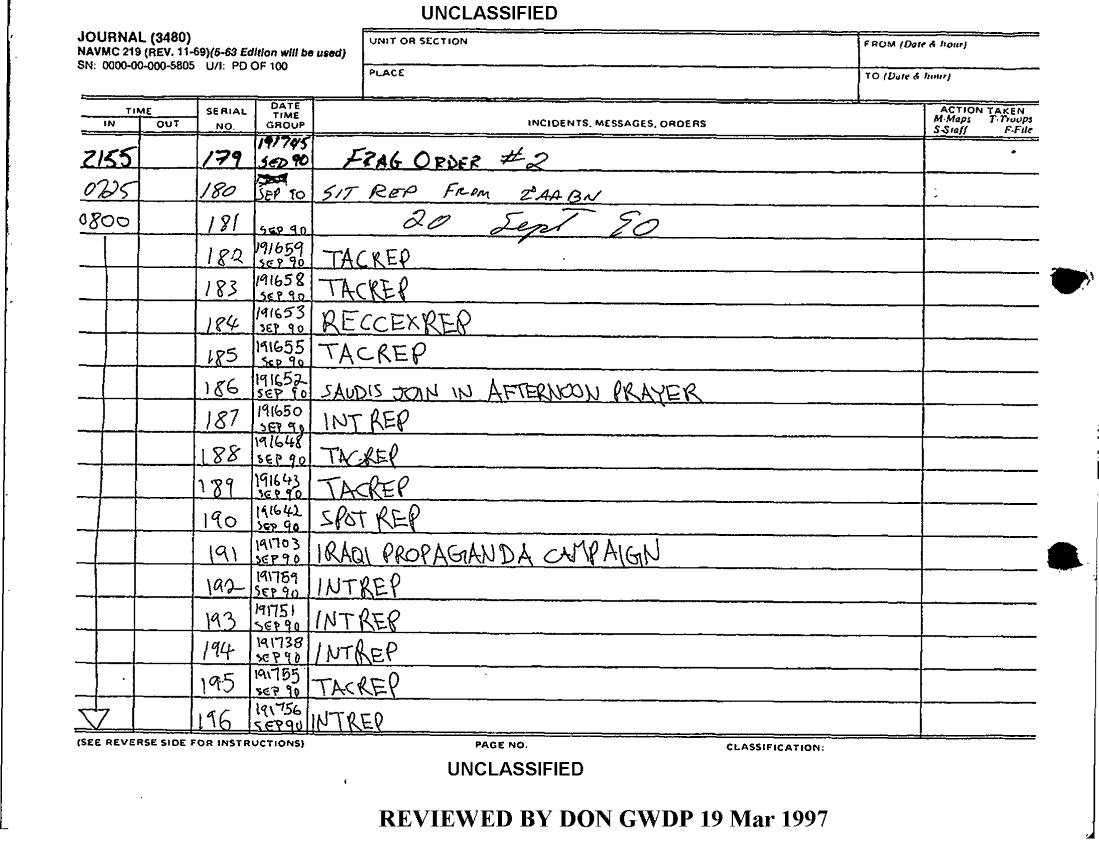 UNCLASSIFIED
JOURNAL (3480)
NAVMC 219 (REV. 11-69)(6-63 Edition will be used)
SN: 0000-00-000-5805 U/I: PD OF 100
UNIT OR SECTION
FROM (Date & hour)
PLACE
TO (Date & hour)
TIME
IN OUT
SERIAL NO.
DATE TIME GROUP
INCIDENTS, MESSAGES, ORDERS
ACTION TAKEN
M-Maps T-Troops
S-Staff F-File
2155 179 191745 SEP 90 FRAG ORDER #2
0725 180 SEP 90 SIT REP FROM 2AABN
0800 181 SEP 90 20 Sept 90
182 191659 SEP 90 TACREP
183 191658 SEP 90 TACREP
184 191653 SEP 90 RECCEXREP
185 191655 SEP 90 TACREP
186 191652 SEP 90 SAUDIS JOIN IN AFTERNOON PRAYER
187 191650 SEP 90 INTREP
188 191648 SEP 90 TACREP
189 191643 SEP 90 TACREP
190 191642 SEP 90 SPOT REP
191 191703 SEP 90 IRAQI PROPAGANDA CAMPAIGN
192 SEP 90 INTREP
193 191751 SEP 90 INTREP
194 191738 SEP 90 INTREP
195 191755 SEP 90 TACREP
196 191756 SEP 90 INTREP
(SEE REVERSE SIDE FOR INSTRUCTIONS) PAGE NO. CLASSIFICATION:
UNCLASSIFIED
REVIEWED BY DON GWDP 19 Mar 1997